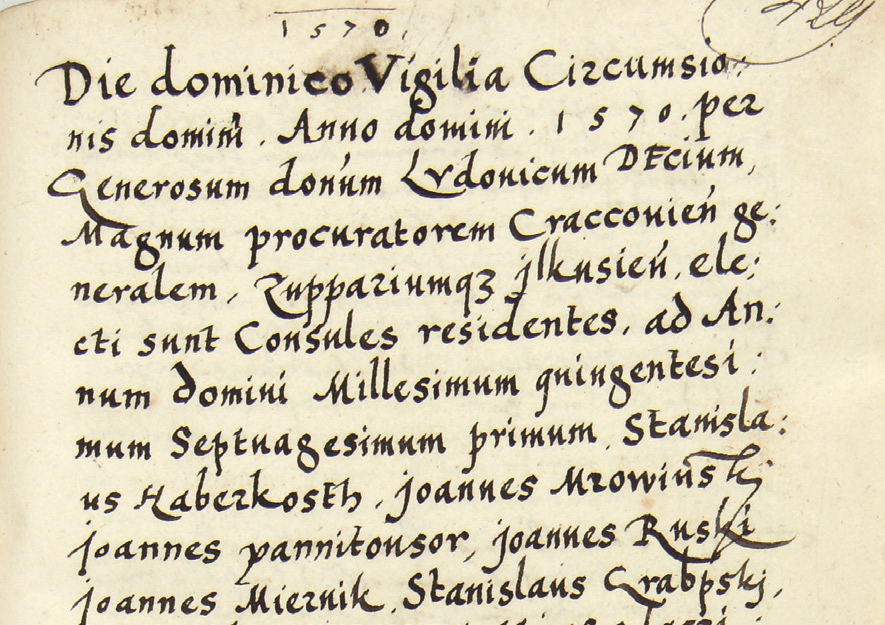 1570.
429
Die dominico Vigilia Circumsio:
nis domini. Anno domini. 1570. per
Generosum donum Lvdouicum DEcium,
Magnum procuratorem Craccouień ge:
neralem, Zuppariumqȝ jlkusień, ele:
cti sunt Consules residentes, ad An:
num domini Millesimum quingentesi:
mum Septuagesimum primum. Stanisla:
us Haberkosth, joannes Mrowiński
joannes pannitonsor, joannes Ruski
joannes Miernik, Stanislaus Grabpskj,